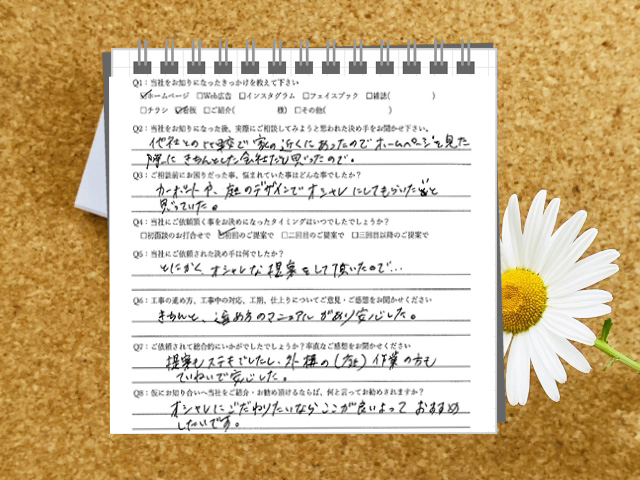 Q1：当社をお知りになったきっかけを教えて下さい
☑ホームページ □Web広告 □インスタグラム □フェイスブック □雑誌( )
□チラシ ☑看板 □ご紹介( 様) □その他( )
Q2：当社をお知りになった後、実際にご相談してみようと思われた決め手をお聞かせ下さい。
他社との比較で家の近くにあったのでホームページを見た
際に きちんとした会社だと思ったので。
Q3：ご相談前にお困りだった事、悩まれていた事はどんな事でしたか？
カーポートや、庭のデザインでオシャレにしてもらいたいと
思っていた。
Q4：当社にご依頼頂く事をお決めになったタイミングはいつでしたでしょうか？
□初面談のお打合せで ☑初回のご提案で □二回目のご提案で □三回目以降のご提案で
Q5：当社にご依頼された決め手は何でしたか？
とにかく オシャレな提案をして頂いたので…
Q6：工事の進め方、工事中の対応、工期、仕上りについてご意見・ご感想をお聞かせください
きちんと、進め方のマニュアルがあり安心した。
Q7：ご依頼されて総合的にいかがでしたでしょうか？率直なご感想をお聞かせください
提案もステキでしたし、外構の 作業の方も
ていねいで安心した。
Q8：仮にお知り合いへ当社をご紹介・お勧め頂けるならば、何と言ってお勧めされますか？
オシャレにこだわりたいなら ここが良いよって おすすめ
したいです。